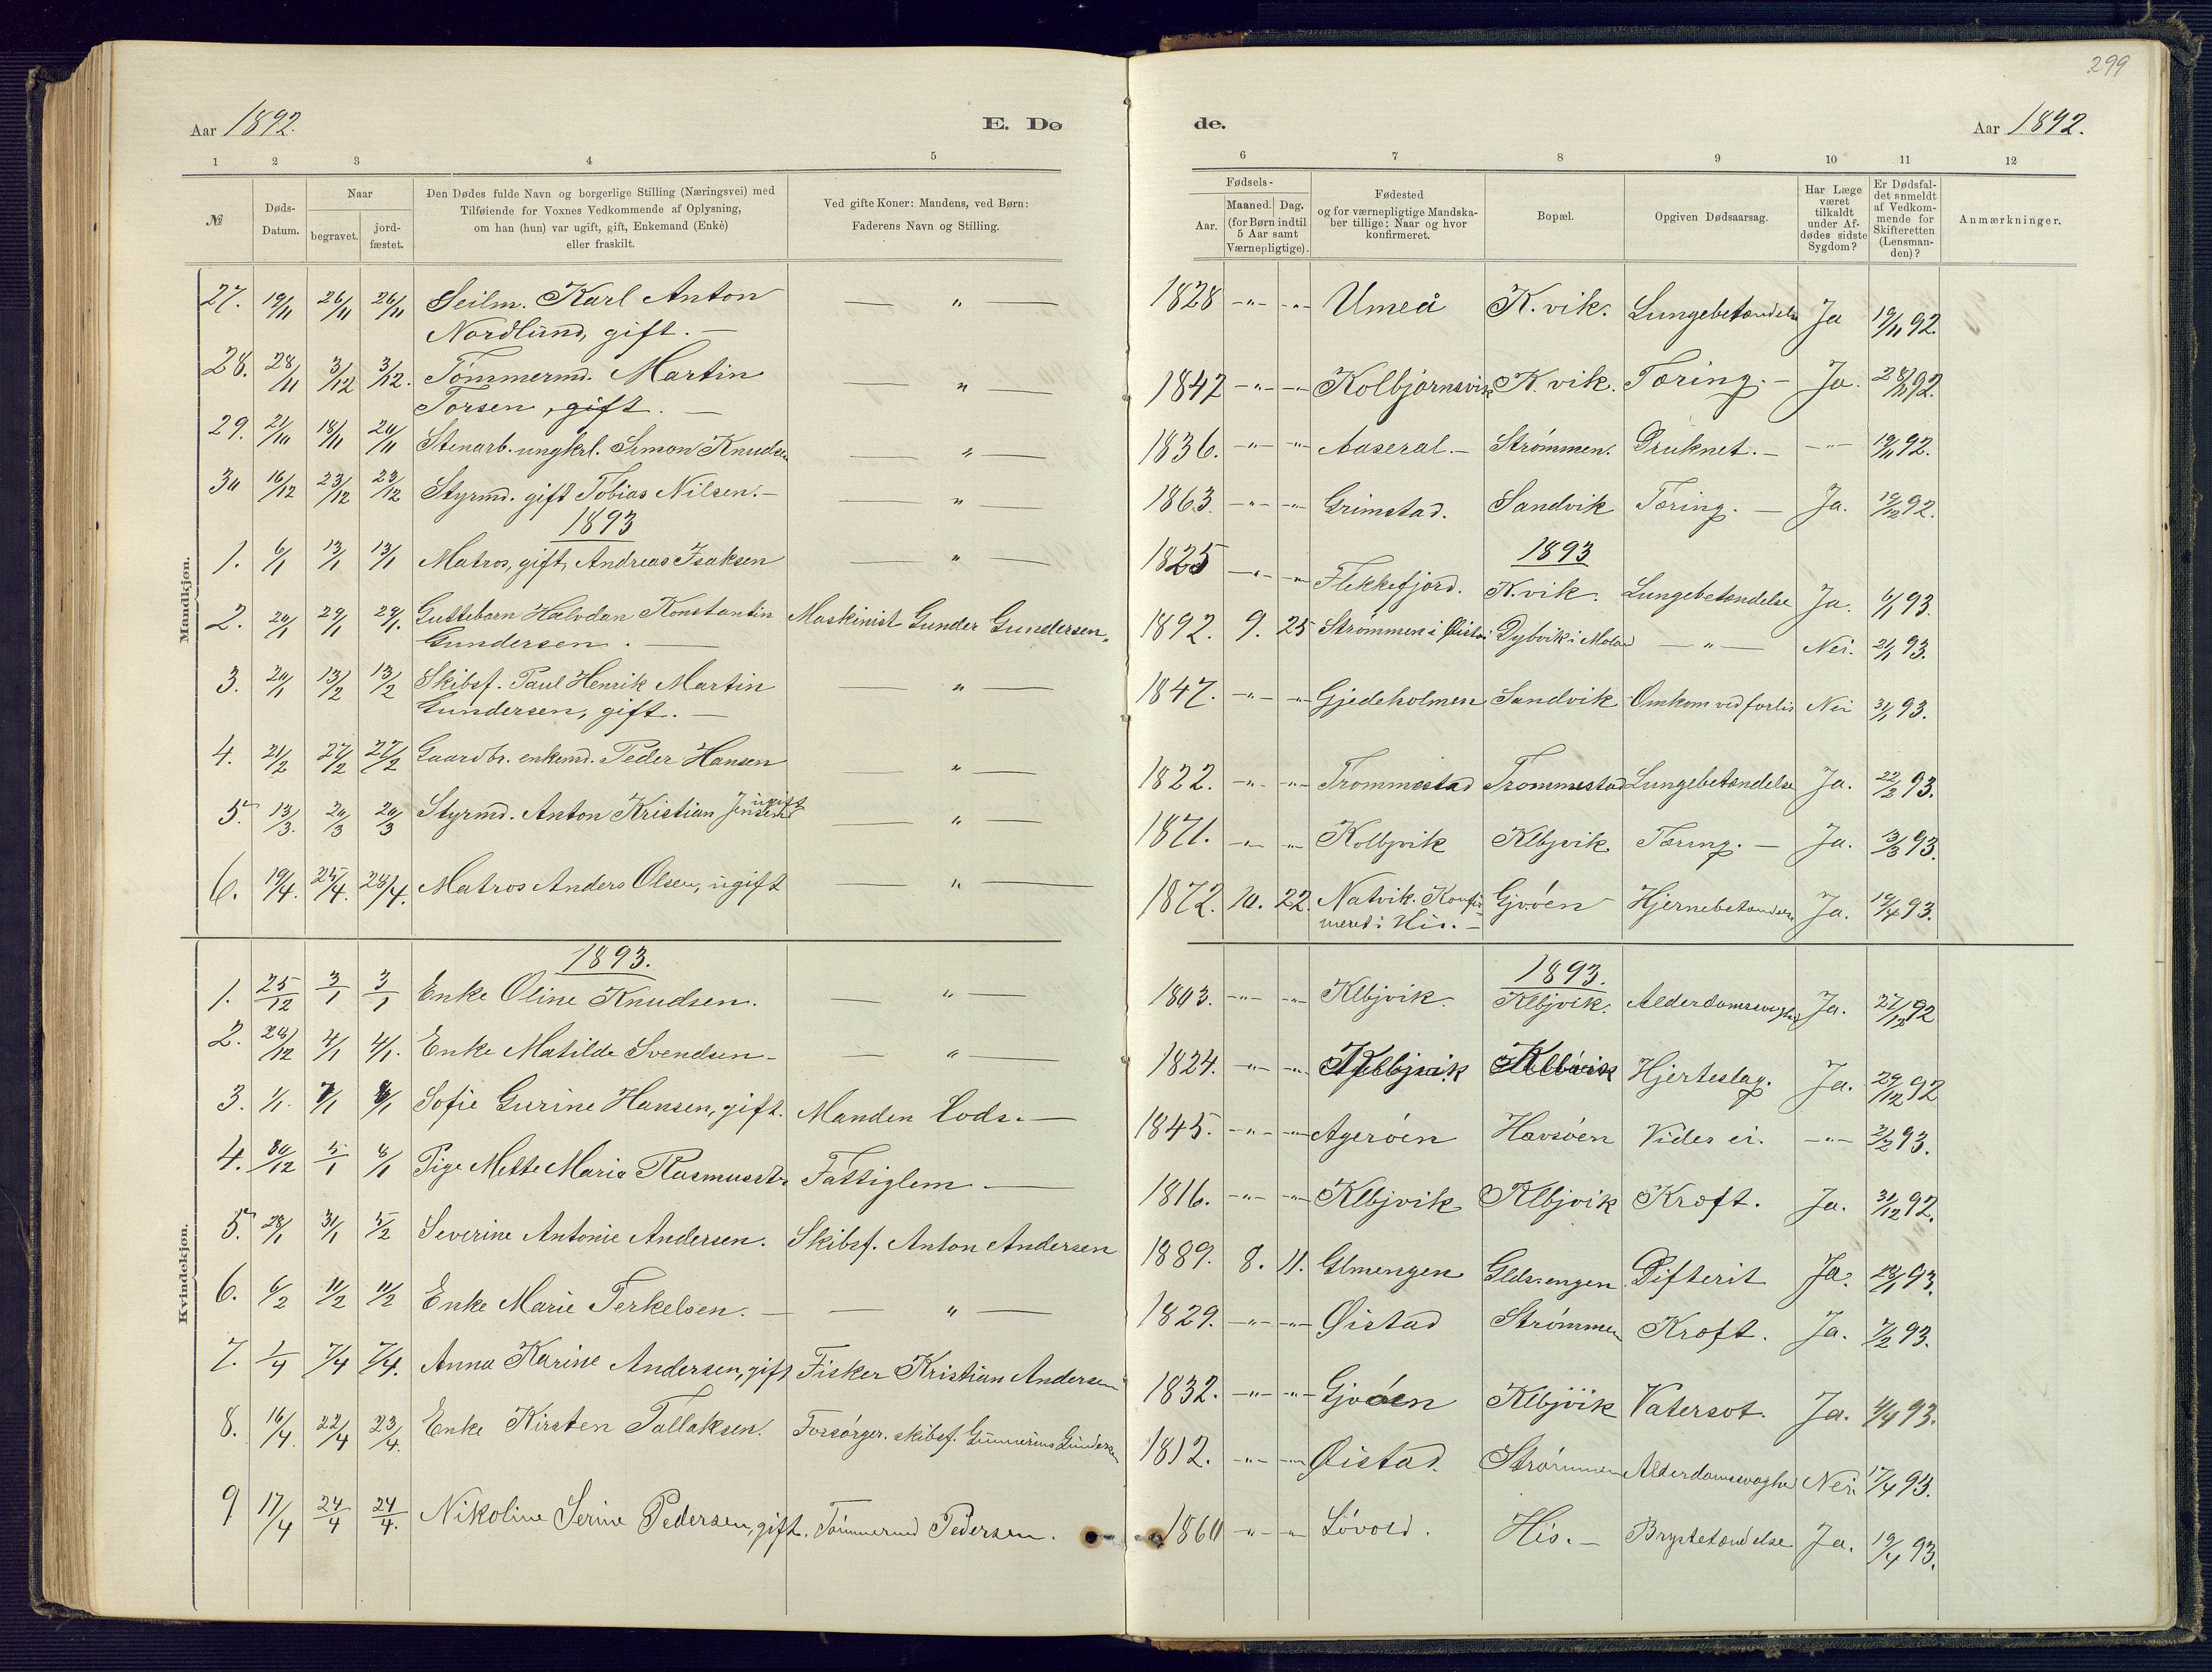 299
Aar 1892.
E. Dø
de.
Aar 1892.
1 2 3 4 5
6 7 8 9 10 11 12
№
Døds-
Datum.
Naar
begravet.
jord-
fæstet.
Den Dødes fulde Navn og borgerlige Stilling (Næringsvei) med
Tilføiende for Voxnes Vedkommende af Oplysning,
om han (hun) var ugift, gift, Enkemand (Enke)
eller fraskilt.
Ved gifte Koner: Mandens, ved Børn:
Faderens Navn og Stilling.
Fødsels-
Aar.
Maaned. Dag.
(for Børn indtil
5 Aar samt
Værnepligtige).
Fødested
og for værnepligtige Mandska-
ber tillige: Naar og hvor
konfirmeret.
Bopæl.
Opgiven Dødsaarsag.
Har Læge
været
tilkaldt
under Af-
dødes sidste
Sygdom?
Er Dødsfal-
det anmeldt
af Vedkom-
mende for
Skifteretten
(Lensman-
den)?
Anmærkninger.
Mandkjøn.
27. 19/11 26/11 26/11 Seilm. Karl Anton — " —
Nordlund, gift. —
28. 28/11 3/12 3/12. Tømmermd. Martin — " —
Torsen, gift. —
29. 21/10 18/11 20/11 Stenarb. ungkrl. Simon Knudsen — " —
30 16/12 23/12 23/12 Styrmd. gift Tobias Nilsen. — — " —
1893
1. 6/1 13/1 13/1 Matros, gift, Andreas Isaksen — " —
2. 20/1 29/1 29/1. Guttebarn Halvdan Konstantin Maskinist Gunder Gundersen.
Gundersen. —
3. 20/1 13/2 13/2 Skibsf. Paul Henrik Martin — " —
Gundersen, gift. —
4. 21/2 27/2 27/2 Gaardbr. enkemd. Peder Hansen — " —
5. 13/3. 20/3 20/3 Styrmd. Anton Kristian Jensen ugift — " —
6. 19/4. 25/4. 28/4. Matros Anders Olsen, ugift — " —
Kvindekjøn.
1893.
1. 25/12 3/1 3/1 Enke Oline Knudsen. — " —
2. 28/12 4/1 4/1. Enke Matilde Svendsen — — " —
3. 1/1. 7/1 8/1 Sofie Gurine Hansen, gift. Manden Lods. —
4. 30/12 5/1 8/1 Pige Mette Marie Rasmusdtr Fattiglem —
5. 28/1 31/1 5/2 Severine Antonie Andersen. Skibsf. Anton Andersen
6. 6/2 11/2 11/2 Enke Marie Terkelsen. — — " —
7. 1/4 7/4 7/4. Anna Karine Andersen, gift Fisker Kristian Andersen
8. 16/4. 22/4 23/4. Enke Kirsten Tallaksen. Forsørger. skibsf. Gunnerius Gundersen
9 17/4 24/4 24/4. Nikoline Serine Pedersen, gift. Tømmermd Pedersen.
1828 -"- -"- Umeå K.vik. Lungebetændelse Ja 19/11 92.
1847 -"- -"- Kolbjørnsvik K.vik. Tæring. — Ja. 28/11 92.
1836. -"- -"- Aaseral. — Strømmen. Druknet. — -"- 19/11 92.
1863. -"- -"- Grimstad. Sandvik Tæring. — Ja. 19/12 92.
1893
1825 -"- -"- Flekkefjord. K.vik. Lungebetændelse Ja. 6/1 93.
1892. 9. 25 Strømmen i Øistad Dybvik i Moland — " — Nei. 21/1 93.
1847. -"- -"- Gjedeholmen Sandvik Omkom ved forlis Nei 31/1 93.
1822. -"- -"- Trommestad Trommestad Lungebetændelse Ja. 22/2 93.
1871. -"- -"- Kolbjvik Klbjvik. Tæring. — Ja. 13/3 93.
1872. 10. 22. Natvik. Konfir-
meret i His. — Gjvøen Hjernebetændelse Ja. 19/4 93.
1893.
1803. -"- -"- Klbjvik. Klbjvik. Alderdomssvaghed Ja. 27/12 92
1824. -"- -"- Klbjvik Klbjvik Hjerteslag. Ja. 29/12 92
1845. -"- -"- Agerøen Havsøen Vides ei. -"- 3/2 93.
1816. -"- -"- Klbjvik Klbjvik Kræft. Ja. 31/12 92.
1889. 8. 11. Glmengen Difterit Ja. 28/1 93.
1829. -"- -"- Øistad Strømmen Kræft. Ja. 7/2 93.
1832. -"- -"- Gjvøen Klbjvik Vatersot. Ja. 4/4 93.
1812. -"- -"- Øistad. Strømmen Alderdomssvaghed Nei. 17/4 93.
1860 -"- -"- Løvold. His. — Brystbetændelse Ja. 19/4 93.